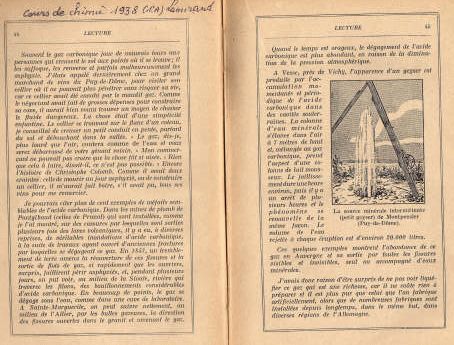 Cours de chimie 1938 (S.P.A.)
44
LECTURE
Souvent le gaz carbonique joue de mauvais tours aux
personnes qui creusent le sol aux points où il se trouve ; il
les suffoque, les renverse et parfois malheureusement les
asphyxie. J'étais appelé dernièrement chez un grand
marchand de vins du Puy-de-Dôme, pour visiter son
cellier où il ne pouvait plus pénétrer sans risquer sa vie,
car ce cellier avait été envahi par le maudit gaz. Comme
le négociant avait fait de grosses dépenses pour construire
sa cave, il aurait bien voulu trouver un moyen de chasser
le fluide dangereux. La chose était d'une simplicité
enfantine. Le cellier se trouvant sur le flanc d'un coteau,
je conseillai de creuser un petit conduit en pente, partant
du sol et débouchant dans la vallée. « Le gaz, dis-je,
plus lourd que l'air, coulera comme de l'eau et vous
serez débarrassé de votre gênant voisin. » Mon commer-
çant ne pouvait pas croire que la chose fût si aisée. « Rien
que cela à faire, disait-il, ce n'est pas possible. » Eternelle
l'histoire de Christophe Colomb. Comme il avait dans
crainte
un cellier, il m'aurait fait boire, s'il avait pu, tous ses
vins pour me remercier.
Je pourrais citer plus de cent exemples de méfaits sem-
blables de l'acide carbonique. Dans les mines de plomb de
Pontgibaud (celles de Pranal) qui sont installées, comme
je l'ai montré, sur des cassures par lesquelles sont sorties
plusieurs fois des laves volcaniques, il y a eu, à diverses
reprises, de véritables inondations d'acide carbonique,
à la suite de travaux ayant ouvert d'anciennes fissures
par lesquelles se dégageait ce gaz. En 1847, un tremble-
ment de terre amena la réouverture de ces fissures et la
sortie de flots de gaz, et rapidement que les ouvriers,
surpris, faillirent périr asphyxiés, et, pendant plusieurs
jours, on put voir, au milieu de la Sioule, rivière qui
traverse les filons, des bouillonnements considérables
d'acide carbonique. En beaucoup de points, le gaz se
dégage sous l'eau, comme dans une cuve de laboratoire.
A Sainte-Marguerite, on peut suivre nettement, au
milieu de l'Allier, par les bulles gazeuses, la direction
des fissures ouvertes dans le granit et amenant le gaz.
LECTURE
45
Quand le temps est orageux, le dégagement de l'acide
carbonique est plus abondant, en raison de la diminu-
tion de la pression atmosphérique.
A Vesse, près de Vichy, l'apparence d'un geyser est
produite par l'ac-
cumulation mo-
mentanée et pério-
dique de l'acide
carbonique dans
des cavités souter-
raines. La colonne
d'eau minérale
s'élance dans l'air
à 7 mètres de haut
et, mélangée au gaz
carbonique, prend
l'aspect d'une co-
lonne de lait mous-
seux. Le jaillisse-
ment dure une heure
environ, puis il y a
un arrêt de plu-
sieurs heures et le
phénomène se
renouvelle de la
même façon. Le
volume de l'eau
rejetée à chaque éruption est d'environ 16.000 litres.
La source minérale intermittente
(petit geyser) de Montpensier
(Puy-de-Dôme).
Ces quelques exemples montrent l'abondance de ce
gaz en Auvergne et sa sortie par toutes les fissures
visibles et invisibles, seul ou accompagnant d'eaux
minérales.
J'avais donc raison d'être surpris de ne pas voir liqué-
fier ce gaz qui est une richesse, car il ne coûte rien à
préparer et il est plus pur que celui que l'on fabrique
artificiellement, alors que de nombreuses fabriques sont
installées depuis longtemps, dans le même but, dans
diverses régions de l'Allemagne.